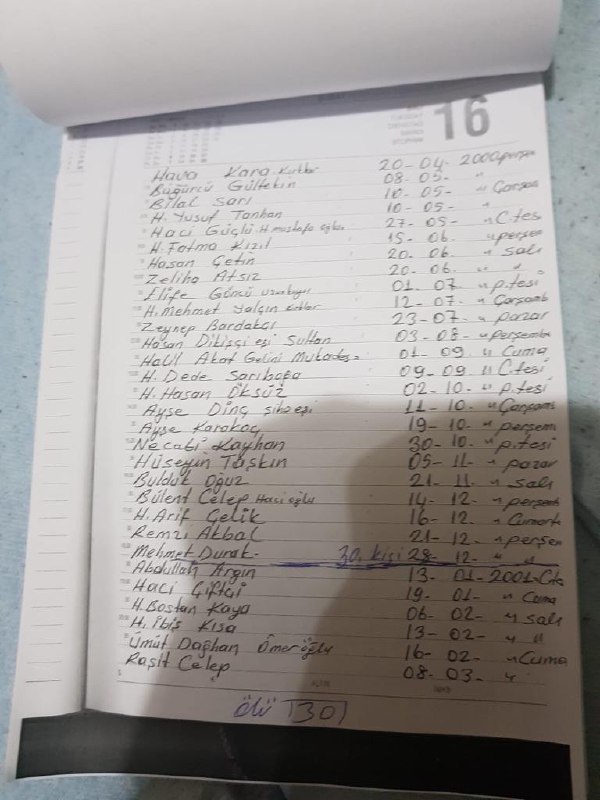 16
Hava Kara Kırklar 20-04-2000 perşem
Büğürcü Gültekin 08-05- "
Bilal Sarı 10-05- " Çarşam
H. Yusuf Tanhan 10-05- "
Haci Güçlü H. mustafa oğlu 27-05- " C.tesi
H. Fatma Kızıl 15-06- " perşem
Hasan Çetin 20-06- " salı
Zeliha Atsız 20-06- " "
Elife Güncü 01-07- " p.tesi
H. Mehmet Yalçın 12-07- " Çarşamb
Zeynep Bardakçı 23-07- " pazar
Hasan Dikişçi eşi Sultan 03-08- " perşembe
Halil Akat Gelini Mukades 01-09 " Cuma
H. Dede Sarıboğa 09-09 " C.tesi
H. Hasan Öksüz 02-10- " p.tesi
Ayşe Dinç 11-10- " Çarşam
Ayşe Karakoç 19-10- " perşem
Necabi Kayhan 30-10- " p.tesi
Hüseyin Taşkın 05-11- " pazar
Bulduk Oğuz 21-11- " salı
Bülent Celep Hacioğlu 14-12- " perşem
H. Arif Çelik 16-12- " Cumart
Remzi Akbal 21-12- " perşem
Mehmet Durak- 30. kişi 28-12- " "
Abdullah Argın 13-01-2001-C.te
Haci Çiftçi 19-01- " Cuma
H. Bostan Kaya 06-02- " salı
H. İbiş Kısa 13-02- " "
Ümüt Dağhan Ömeroğlu 16-02- " Cuma
Raşit Celep 08-03- "
ölü 30